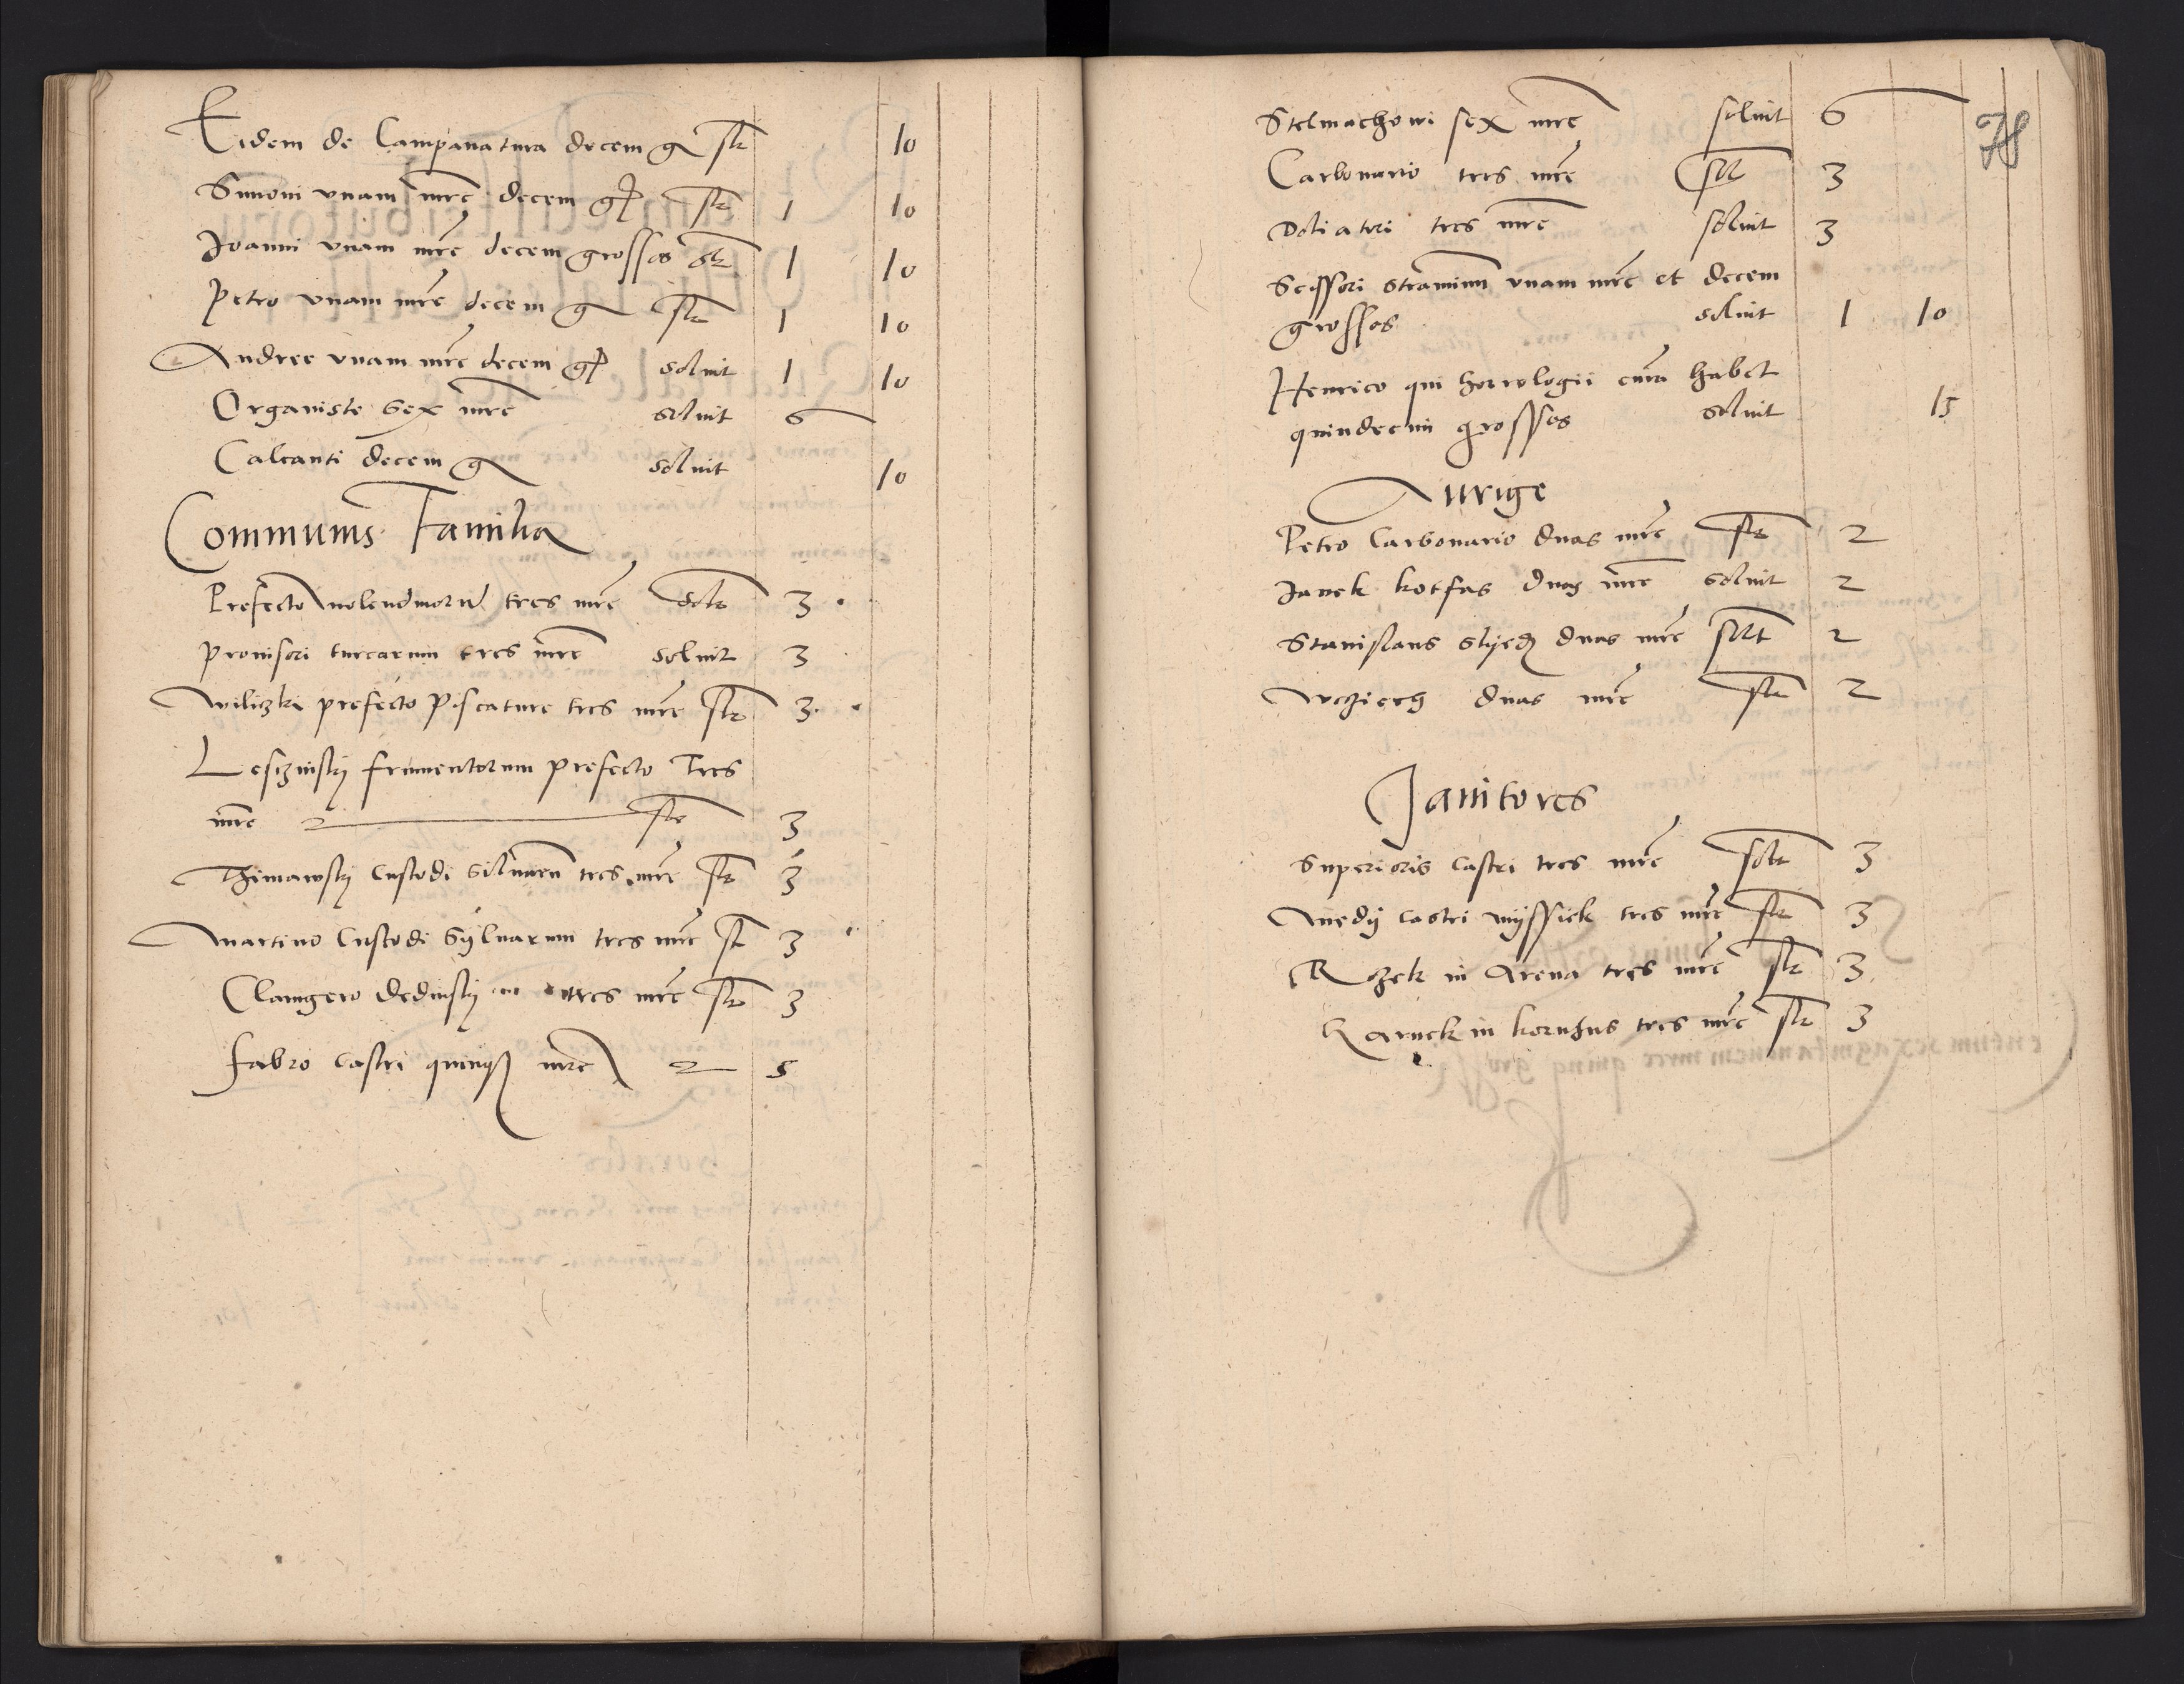 Eidem de Campanatura decem g slt 10
Simoni vnam mrc decem gr slt 1 10
Joanni vnam mrc decem grossos slt 1 10
Petro vnam mrc decem g slt 1 10
Andree vnam mrc decem gr soluit 1 10
Organiste sex mrc soluit 6
Calcanti decem g soluit 10
Communis Familia
Prefecto molendinorum tres mrc solt 3
Prouisori turcarum tres mrc soluit 3
Wiliczki prefecto Piscature tres mrc slt 3
Lesczinsky frumentorum prefecto Tres
mrc slt 3
Thimawsky Custodi siluarum tres mrc slt 3
Martino Custodi Syluarum tres mrc slt 3
Clauigero dedinsky tres mrc slt 3
Fabro castri quinque mrc 5
78
Stelmachowi sex mrc soluit 6
Carbonario tres mrc solt 3
Doliatori tres mrc soluit 3
Scissori straminum vnam mrc et decem
grossos soluit 1 10
Henrico qui horrologii curam habet
quindecim grossos soluit 15
Aurige
Petro Carbonario duas mrc slt 2
Janek kotfas duas mrc soluit 2
Stanislaus duas mrc solt 2
Woziech duas mrc slt 2
Janitores
Superioris castri tres mrc solt 3
Medij castri myssick tres mrc slt 3
Rozek in Arena tres mrc slt 3
in kornhus tres mrc slt 3